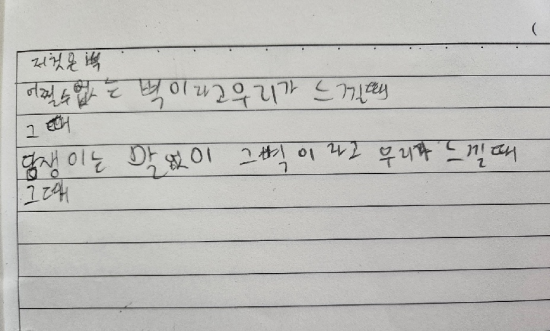 저것은 벽
어쩔수없는 벽이라고우리가 느낄때
그 때
담쟁이는 말없이 그벽이라고 우리가 느낄때
그때